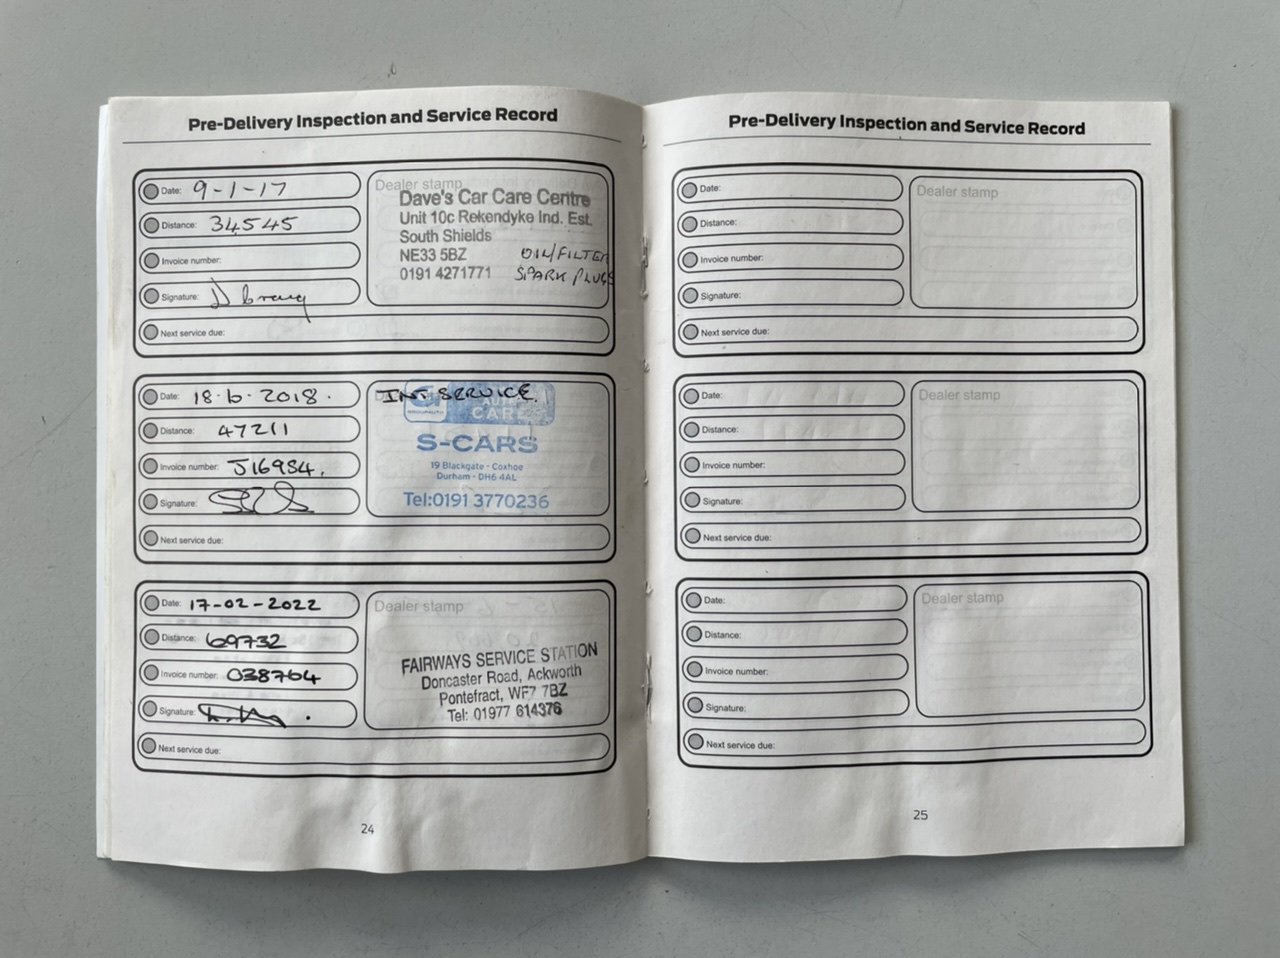 Pre-Delivery Inspection and Service Record
Date: 9-1-17
Distance: 34545
Invoice number:
Signature:
Next service due:
Dealer stamp
Dave's Car Care Centre
Unit 10c Rekendyke Ind. Est.
South Shields
NE33 5BZ
0191 4271771
OIL/FILTER
SPARK PLUGS
Date: 18·6·2018.
Distance: 47211
Invoice number: J16984.
Signature:
Next service due:
INT SERVICE.
GROUPAUTO
AUTO
CARE
S-CARS
19 Blackgate - Coxhoe
Durham - DH6 4AL
Tel:0191 3770236
Date: 17-02-2022
Distance: 69732
Invoice number: 038764
Signature:
Next service due:
Dealer stamp
FAIRWAYS SERVICE STATION
Doncaster Road, Ackworth
Pontefract, WF7 7BZ
Tel: 01977 614376
24
Pre-Delivery Inspection and Service Record
Date:
Distance:
Invoice number:
Signature:
Next service due:
Dealer stamp
Date:
Distance:
Invoice number:
Signature:
Next service due:
Dealer stamp
Date:
Distance:
Invoice number:
Signature:
Next service due:
Dealer stamp
25